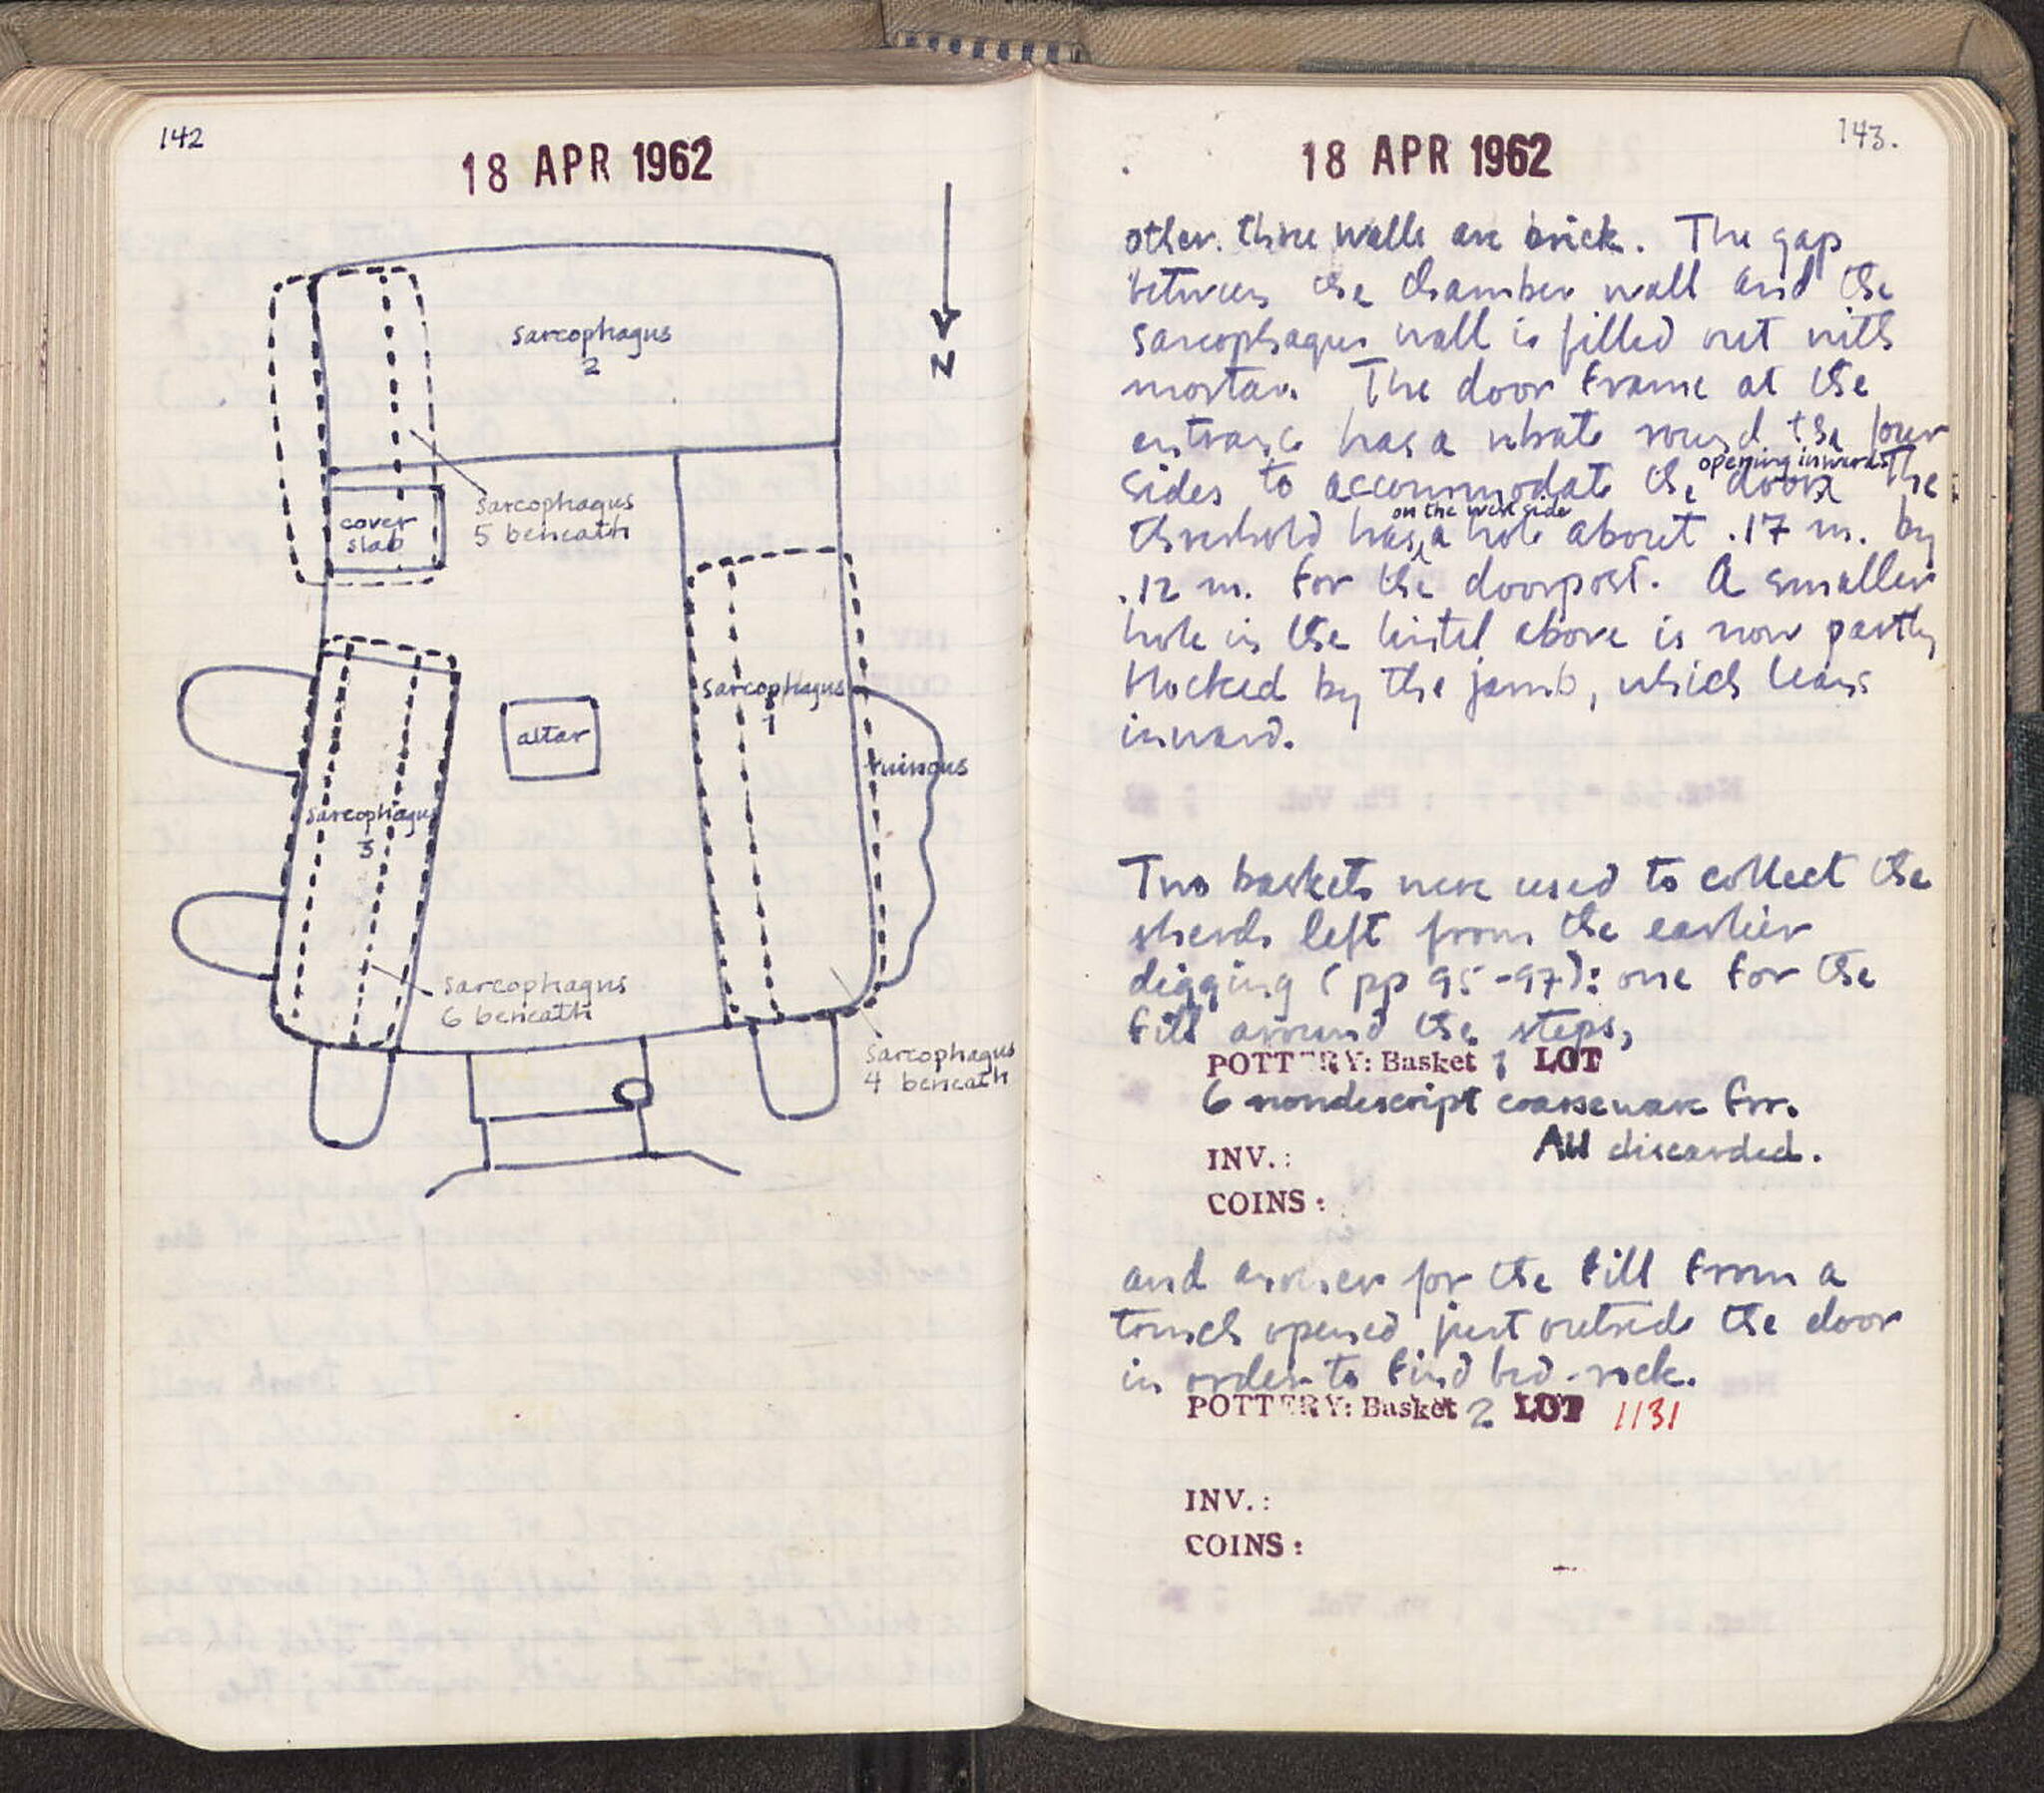 142
18 APR 1962
N
sarcophagus
2
cover
slab
sarcophagus
5 beneath
sarcophagus
1
altar
ruinous
sarcophagus
3
sarcophagus
6 beneath
sarcophagus
4 beneath
143.
18 APR 1962
other three walls are brick. The gap
between the chamber wall and the
sarcophagus wall is filled out with
mortar. The door frame at the
entrance has a rebate round the four
sides to accommodate the door opening inwards. The
threshold has on the west side a hole about .17 m. by
.12 m. for the doorpost. A smaller
hole in the lintel above is now partly
blocked by the jamb, which leans
inward.
Two baskets were used to collect the
sherds left from the earlier
digging (pp 95-97): one for the
fill around the steps,
POTTERY: Basket 1 LOT
6 nondescript coarseware frr.
All discarded.
INV.:
COINS:
and another for the fill from a
trench opened just outside the door
in order to find bed-rock.
POTTERY: Basket 2 LOT 1131
INV.:
COINS: